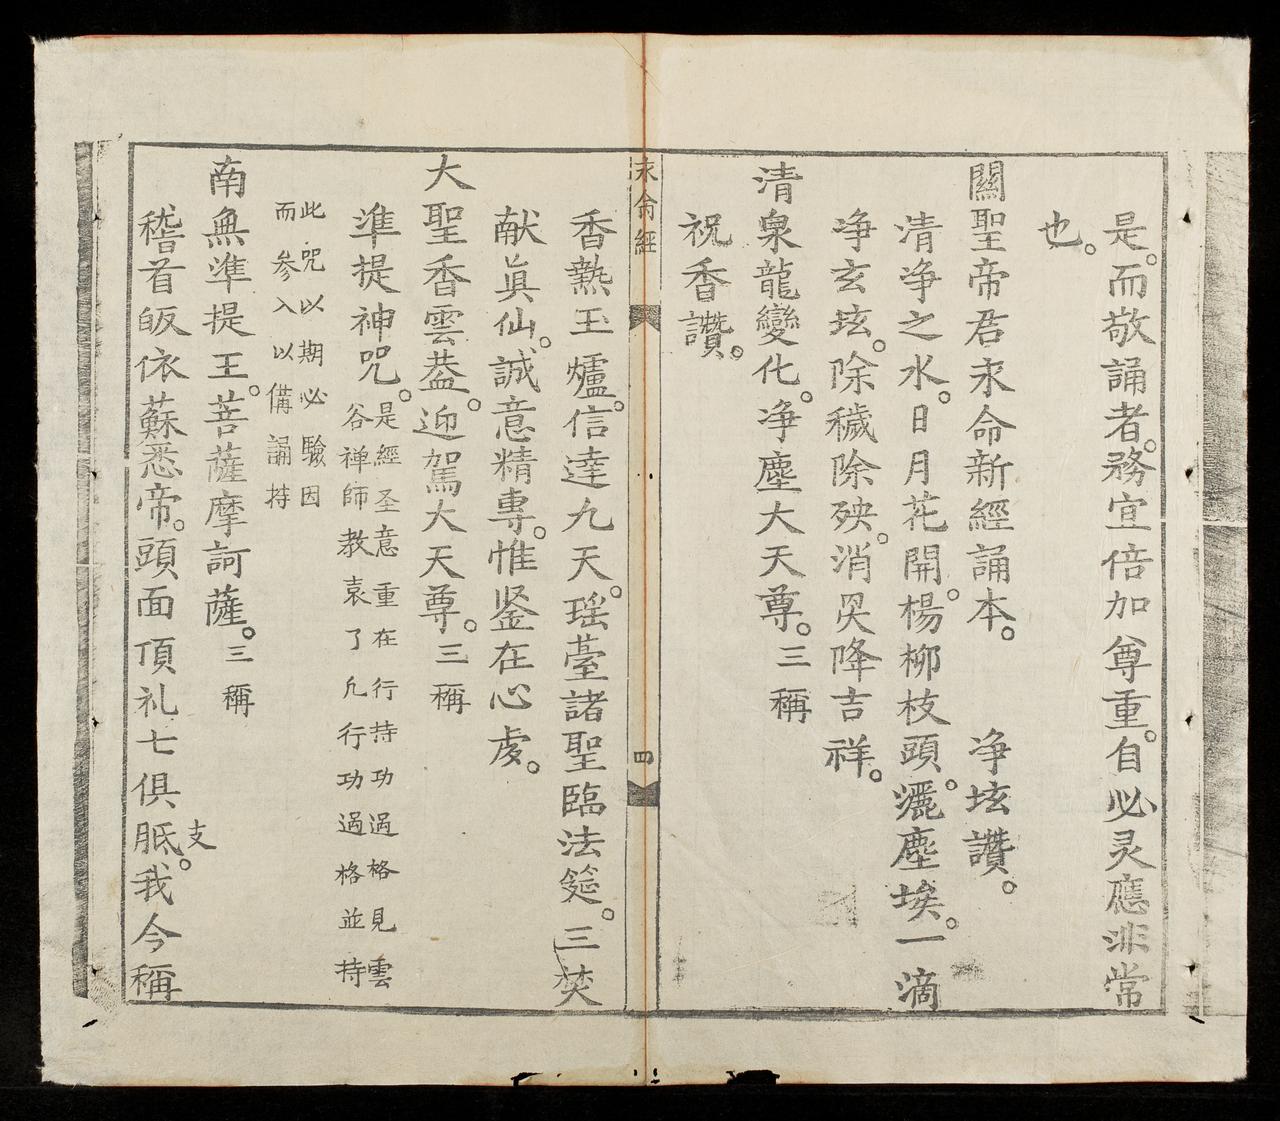 是。而敬誦者。務宜倍加尊重。自必灵應非常
也。
關聖帝君求命新經誦本。　净垓讚。
清净之水。日月花開。楊柳枝頭。灑塵埃。一滴
净玄垓。除穢除殃。消灾降吉祥。
清泉龍變化。净塵大天尊。三稱
祝香讚。
求命經
四
香熱玉爐。信達九天。瑶臺諸聖臨法筵。三焚
献真仙。誠意精專。惟鉴在心虔。
大聖香雲葢。迎駕大天尊。三稱
準提神咒。是經圣意重在行持功過格見雲
谷禅師教袁了凡行功過格並持
此咒以期必驗因
而参入以備誦持
南無準提王。菩薩摩訶薩。三稱
稽首皈依蘇悉帝。頭面頂礼七俱胝。我今稱
支